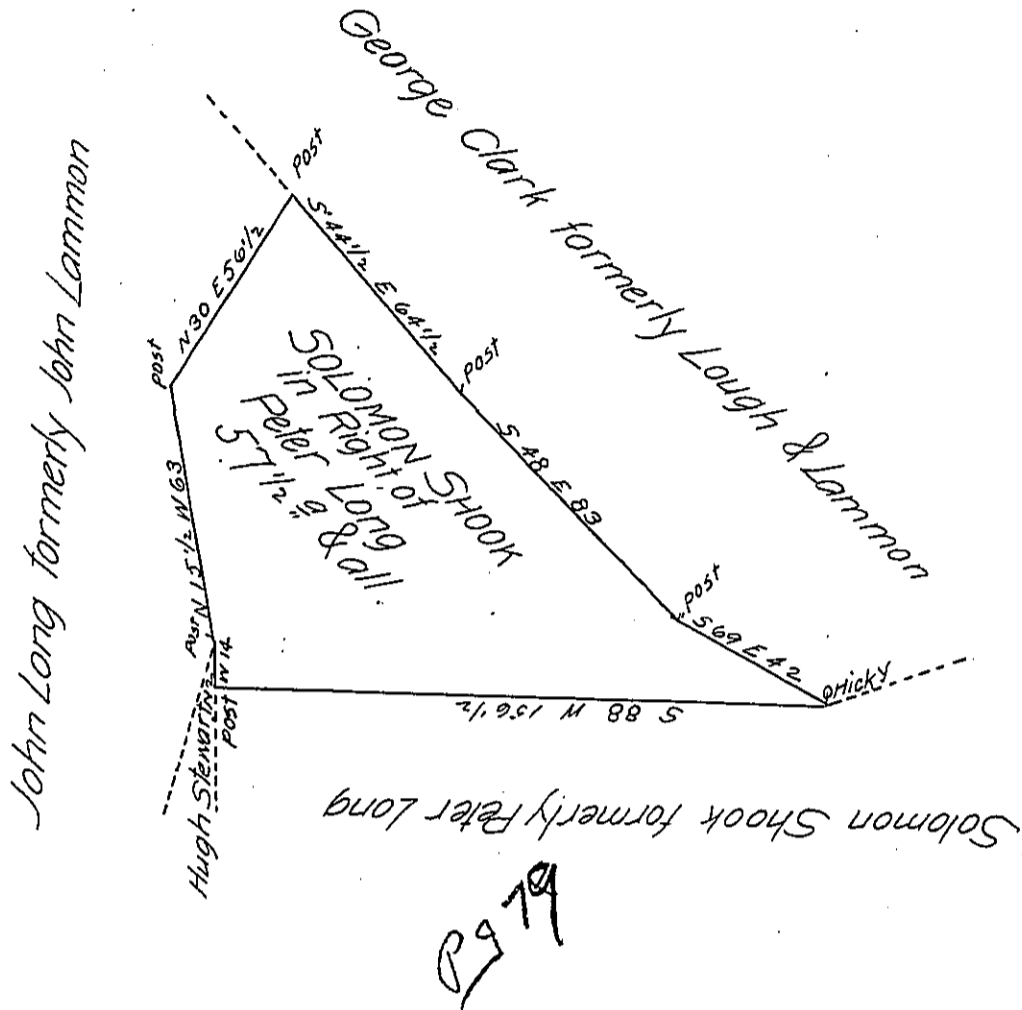 George Clark formerly Lough & Lammon
John Long formerly John Lammon
post
N 30 E 56 1/2
S 44 1/2 E 64 1/2
post
post
SOLOMON SHOOK
in Right of
Peter Long
57 1/2 a & all.
S 48 E 83
N 15 1/2 W 63
post
post
S 69 E 42
W 14
Hicky
post
S 88 W 156 1/2
Hugh Stewart
Solomon Shook formerly Peter Long
Pg 79